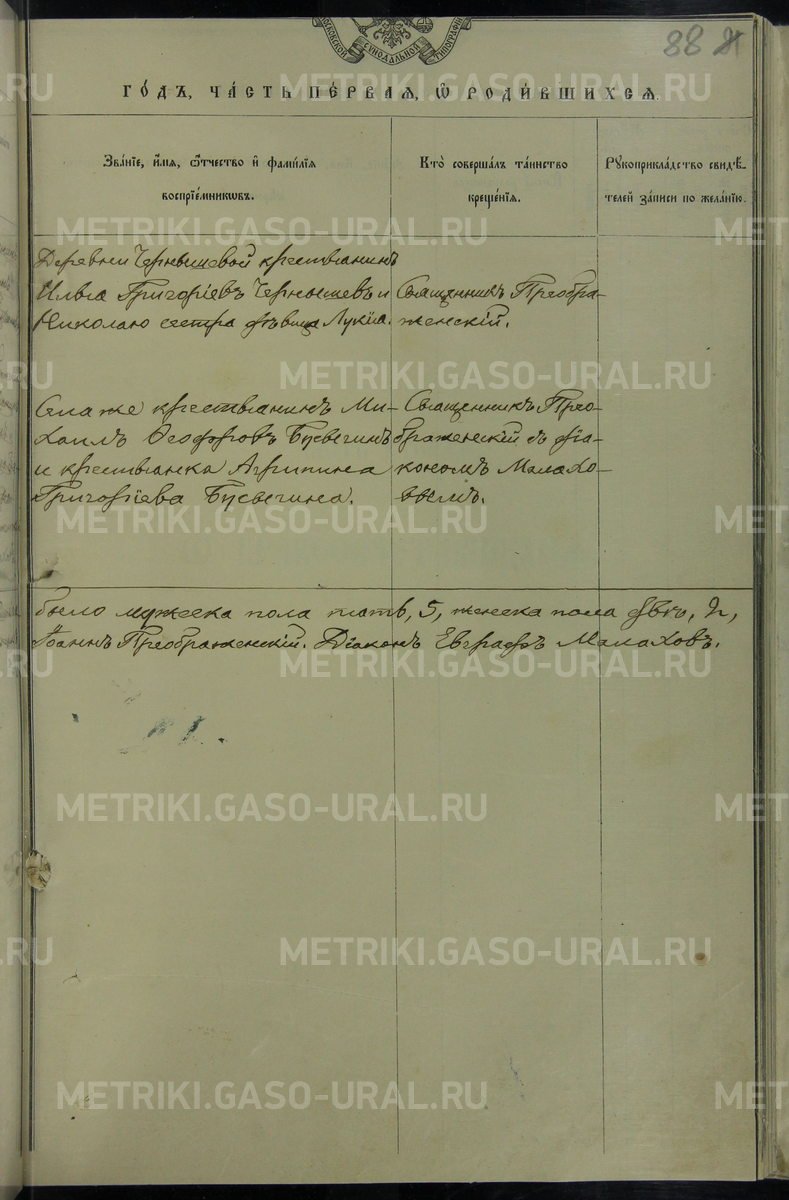 МОСКОВСКОЙ СѴНОДАЛЬНОЙ ТИПОГРАФІИ
88
ГО́ДЪ, ЧА́СТЬ ПЕ́РВАЯ, Ѡ҆ РОДИ́ВШИХСЯ.
Зва́нїе, и҆́мя, ѻ҆́тчество и҆ фами́лїя
воспрїе́мникѡвъ.
Кто̀ соверша́лъ та́инство
креще́нїя.
Рꙋкоприкла́дство свидѣ́-
телей за́писи по жела́нїю.
Деревни Чернышевой крестьянинъ
Илья Григорїевъ Чернышевъ и
Николаю сестра дѣвица Лукїа.
Священникъ Преобра-
женскій.
Села же крестьянинъ Ми-
хаилъ Ѳеодоровъ Бусыгинъ
и крестьянка Агрипина
Григорїева Бусыгина.
Священникъ Прео-
браженскій съ дїа-
кономъ Малахо-
вымъ.
было мужеска пола пять, 5, женска пола двѣ, 2,
Іоаннъ Преображенскій. Дїаконъ Евграфъ Малаховъ.
METRIKI.GASO-URAL.RU